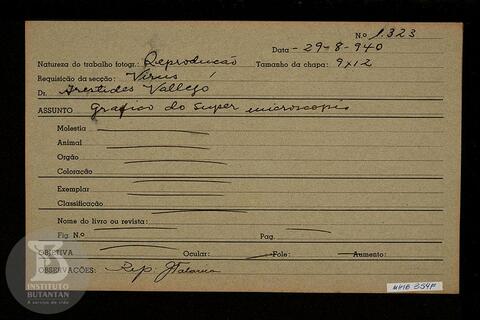 N.o 1.323
Data - 29-8-940
Natureza do trabalho fotogr.: Reprodução Tamanho da chapa: 9x12
Requisição da secção: Virus
Dr. Arestides Vallejo
ASSUNTO grafico do super microscopio
Molestia
Animal
Orgão
Coloração
Exemplar
Classificação
Nome do livro ou revista:
Fig. N.o Pag.
OBJETIVA Ocular: Fole: Aumento:
OBSERVAÇÕES: Rep.
INSTITUTO
BUTANTAN
A serviço da vida